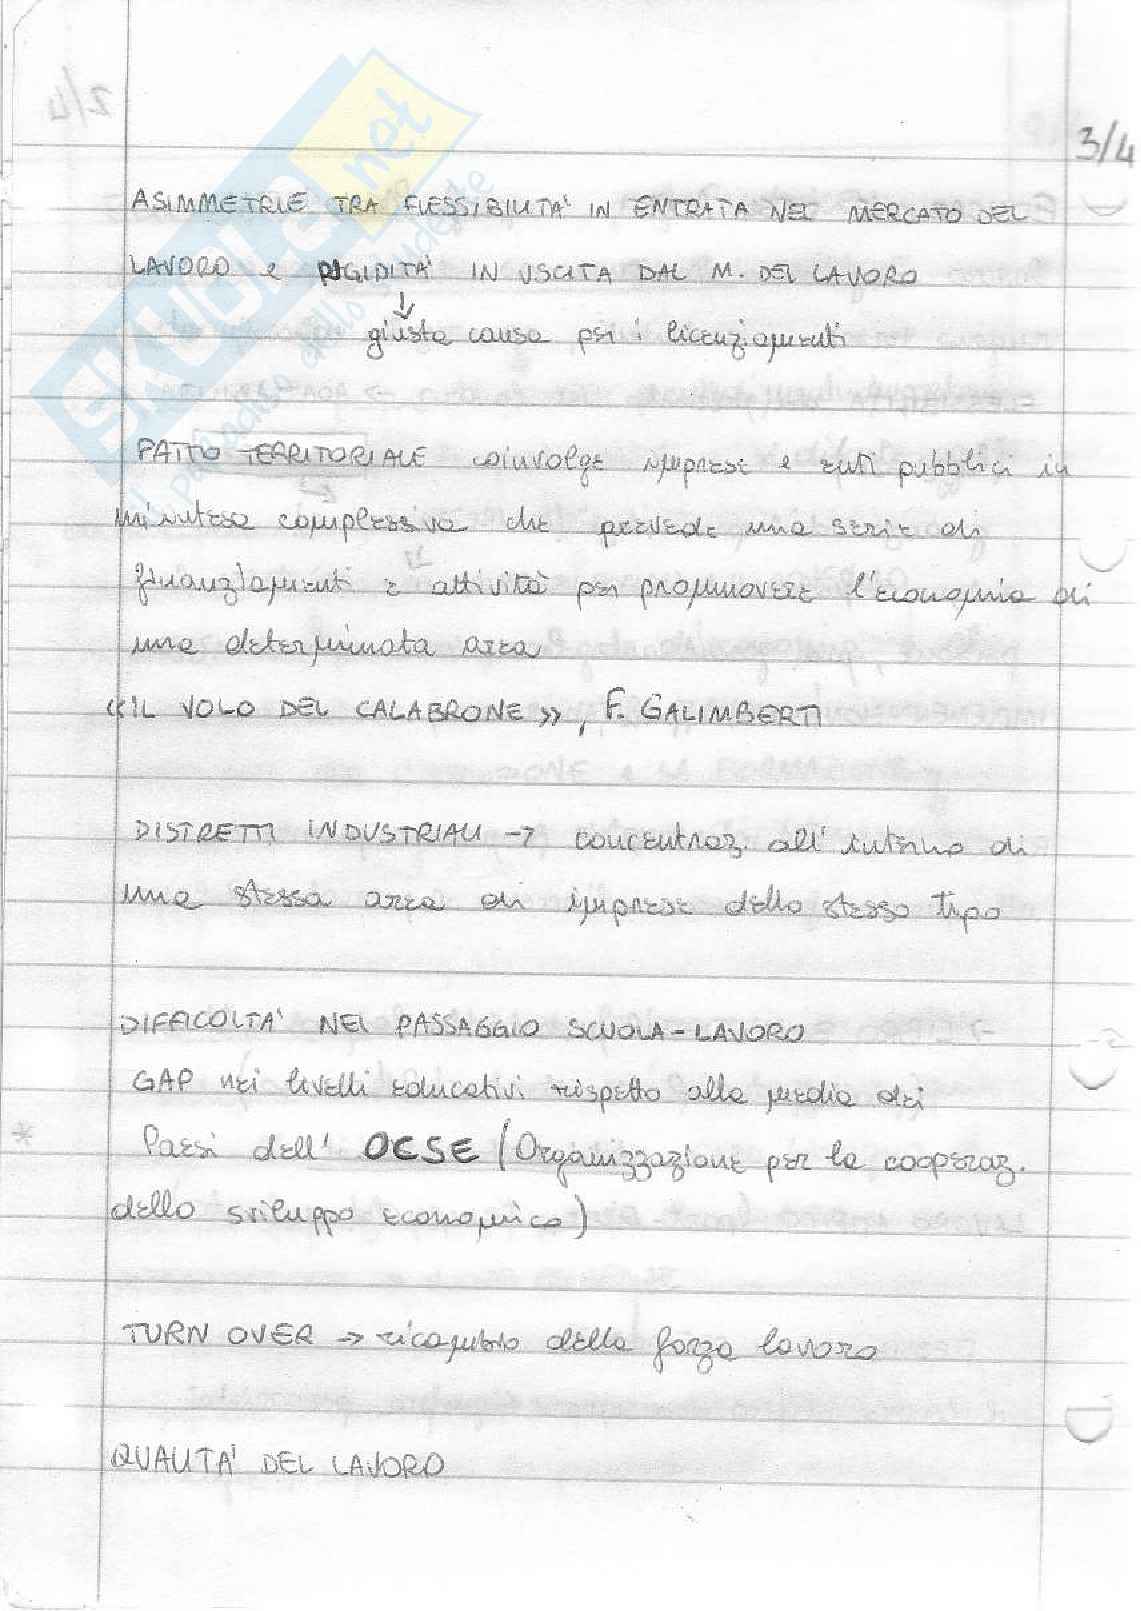 3/4
ASIMMETRIE TRA FLESSIBILITA' IN ENTRATA NEL MERCATO DEL
LAVORO e RIGIDITA' IN USCITA DAL M. DEL LAVORO
↓
giusta causa per i licenziamenti
PATTO TERRITORIALE coinvolge imprese e enti pubblici in
un'intesa complessiva che prevede una serie di
finanziamenti e attività per promuovere l'economia di
una determinata area
«IL VOLO DEL CALABRONE», F. GALIMBERTI
DISTRETTI INDUSTRIALI → concentraz. all'interno di
una stessa area di imprese dello stesso tipo
DIFFICOLTA' NEL PASSAGGIO SCUOLA-LAVORO
GAP nei livelli educativi rispetto alla media dei
* Paesi dell' OCSE (Organizzazione per la cooperaz.
dello sviluppo economico)
TURN OVER → ricambio della forza lavoro
QUALITA' DEL LAVORO
SKUOLA.net
il paradiso dello studente